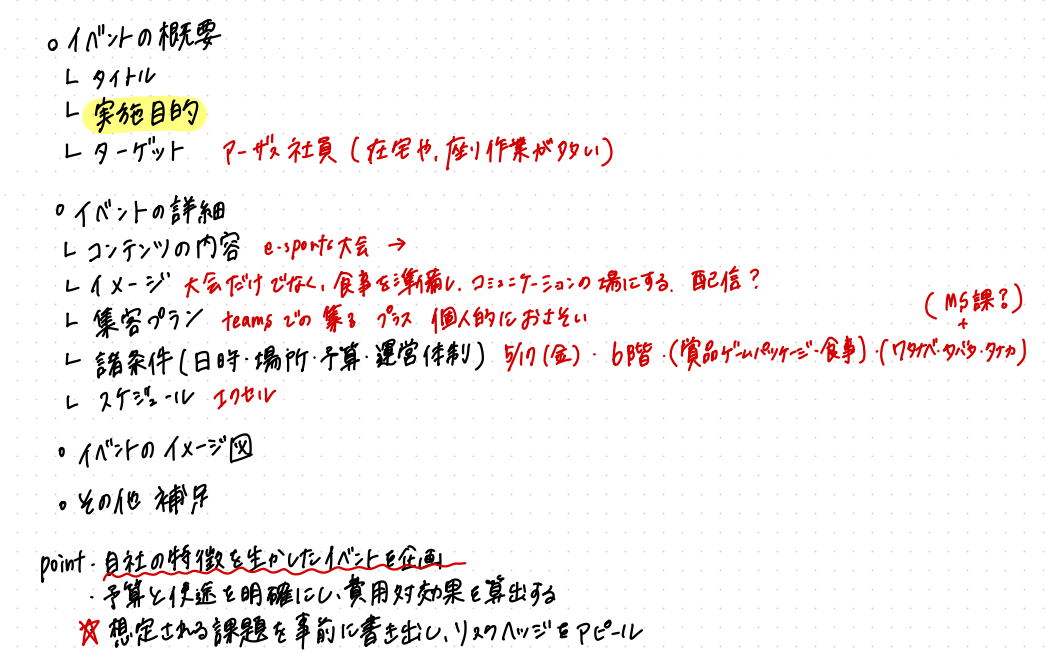 ○イベントの概要
└ タイトル
└ 実施目的
└ ターゲット アーザス社員 (在宅や、座り作業が多い)
○イベントの詳細
└ コンテンツの内容 e-sports大会 →
└ イメージ 大会だけでなく、食事を準備し、コミュニケーションの場にする. 配信?
└ 集客プラン teamsでの集る プラス 個人的におさそい
(MS課?)
+
└ 諸条件(日時・場所・予算・運営体制) 5/17(金)・6階・(賞品ゲームパッケージ・食事)・(ワタイベ・タバタ・タナカ)
└ スケジュール エクセル
○イベントのイメージ図
○その他 補足
point ・自社の特徴を生かしたイベントを企画
・予算と使途を明確にし、費用対効果を算出する
☆想定される課題を事前に書き出し、リスクヘッジをアピール